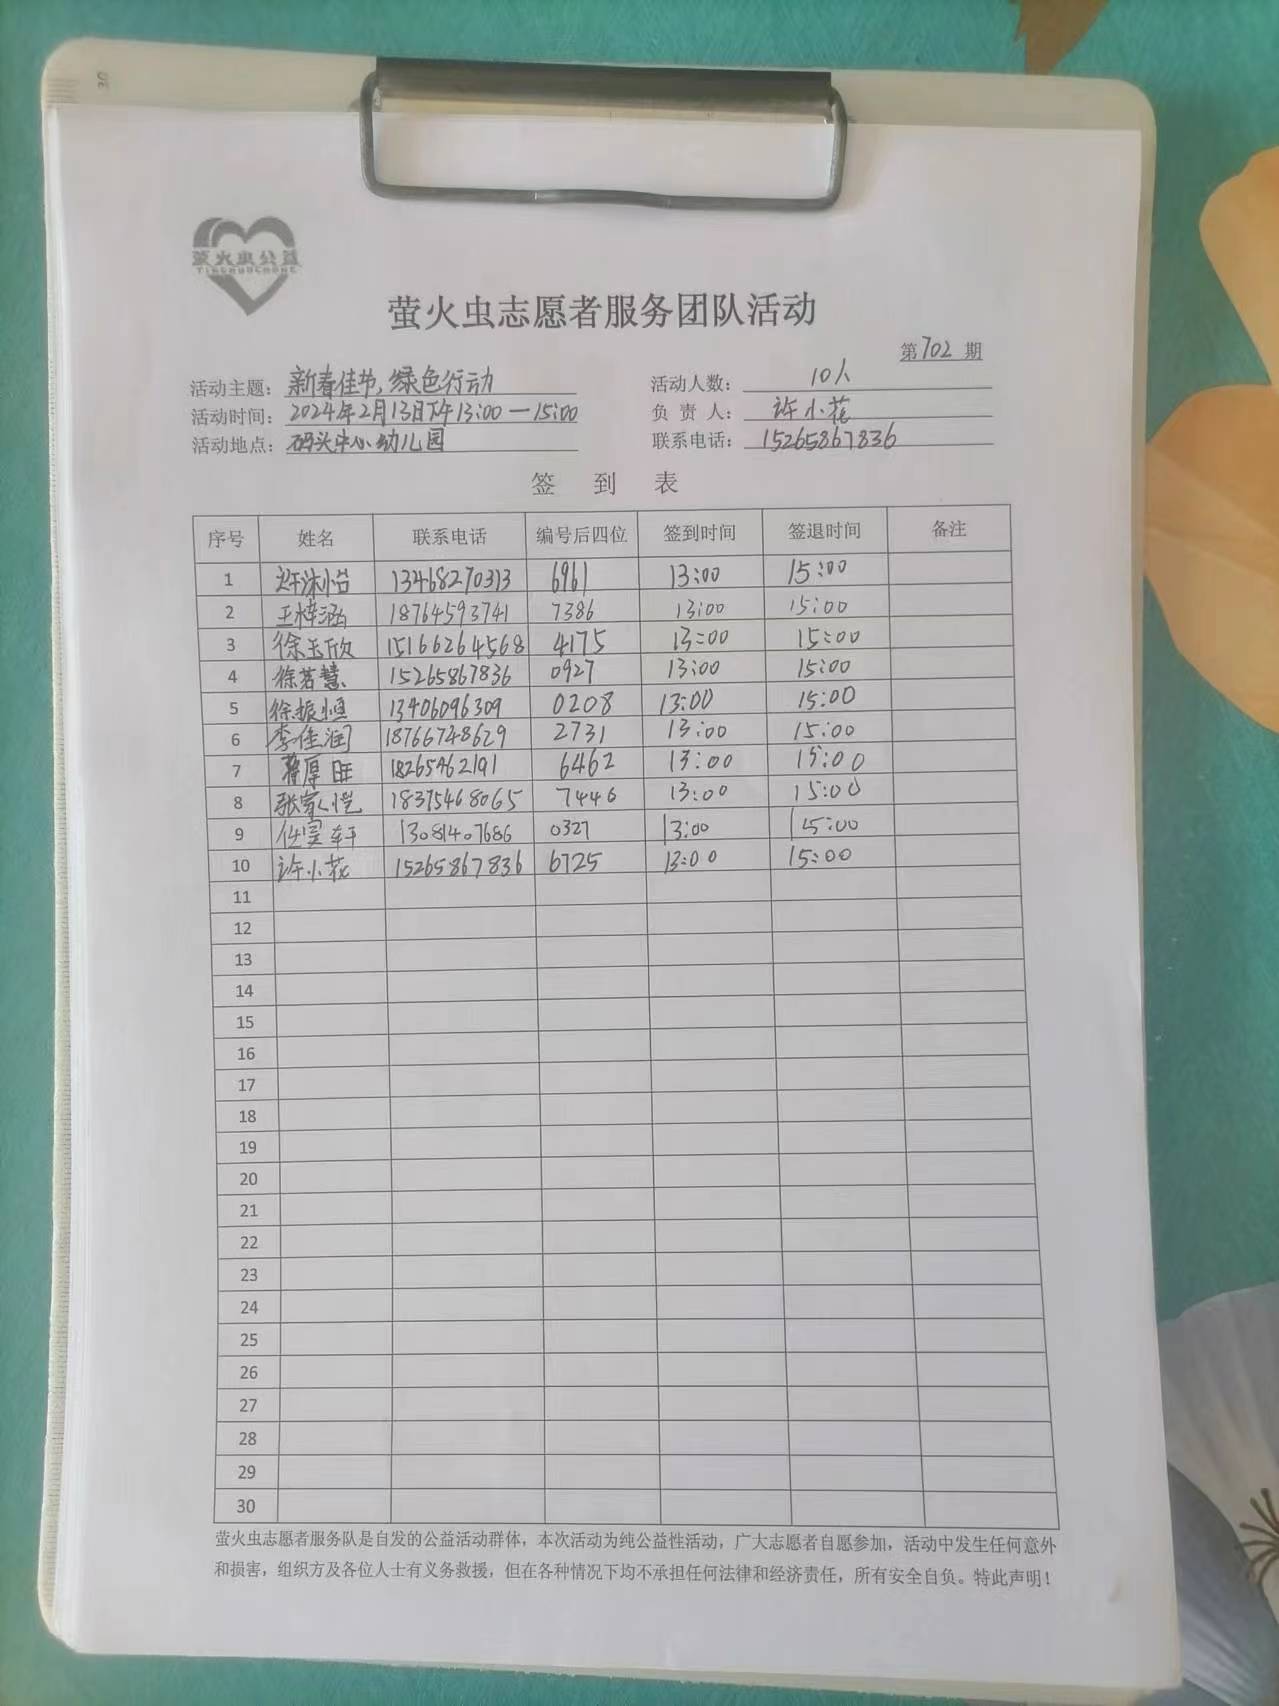 30
萤火虫公益
YINGHUOCHONG
萤火虫志愿者服务团队活动
第702期
活动主题：新春佳节,绿色行动 活动人数：10人
活动时间：2024年2月13日下午13:00—15:00 负 责 人：许小花
活动地点：码头中心幼儿园 联系电话：15265867836
签 到 表
序号 姓名 联系电话 编号后四位 签到时间 签退时间 备注
1 许沐怡 13468270313 6961 13:00 15:00
2 王梓涵 18764593741 7386 13:00 15:00
3 徐玉欣 15166264568 4175 13:00 15:00
4 徐若慧 15265867836 0927 13:00 15:00
5 徐振恒 13406096309 0208 13:00 15:00
6 李佳润 18766748629 2731 13:00 15:00
7 厚旺 18265462191 6462 13:00 15:00
8 张家恺 18375468065 7446 13:00 15:00
9 任昊轩 13081407686 0327 13:00 15:00
10 许小花 15265867836 6725 13:00 15:00
11
12
13
14
15
16
17
18
19
20
21
22
23
24
25
26
27
28
29
30
萤火虫志愿者服务队是自发的公益活动群体，本次活动为纯公益性活动，广大志愿者自愿参加，活动中发生任何意外
和损害，组织方及各位人士有义务救援，但在各种情况下均不承担任何法律和经济责任，所有安全自负。特此声明！